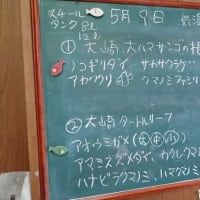 スチール
タンク 8ℓ
12ℓ
5月9日 気温
① 大崎 大ハマサンゴの根
ノコギリダイ サカサクラゲ
アカククリ クマノミファミリ
② 大崎 タートルリーフ
アオウミガメ(大中小)
アマミスズメダイ、カクレクマノミ
ハナビラクマノミ、ハマクマノミ